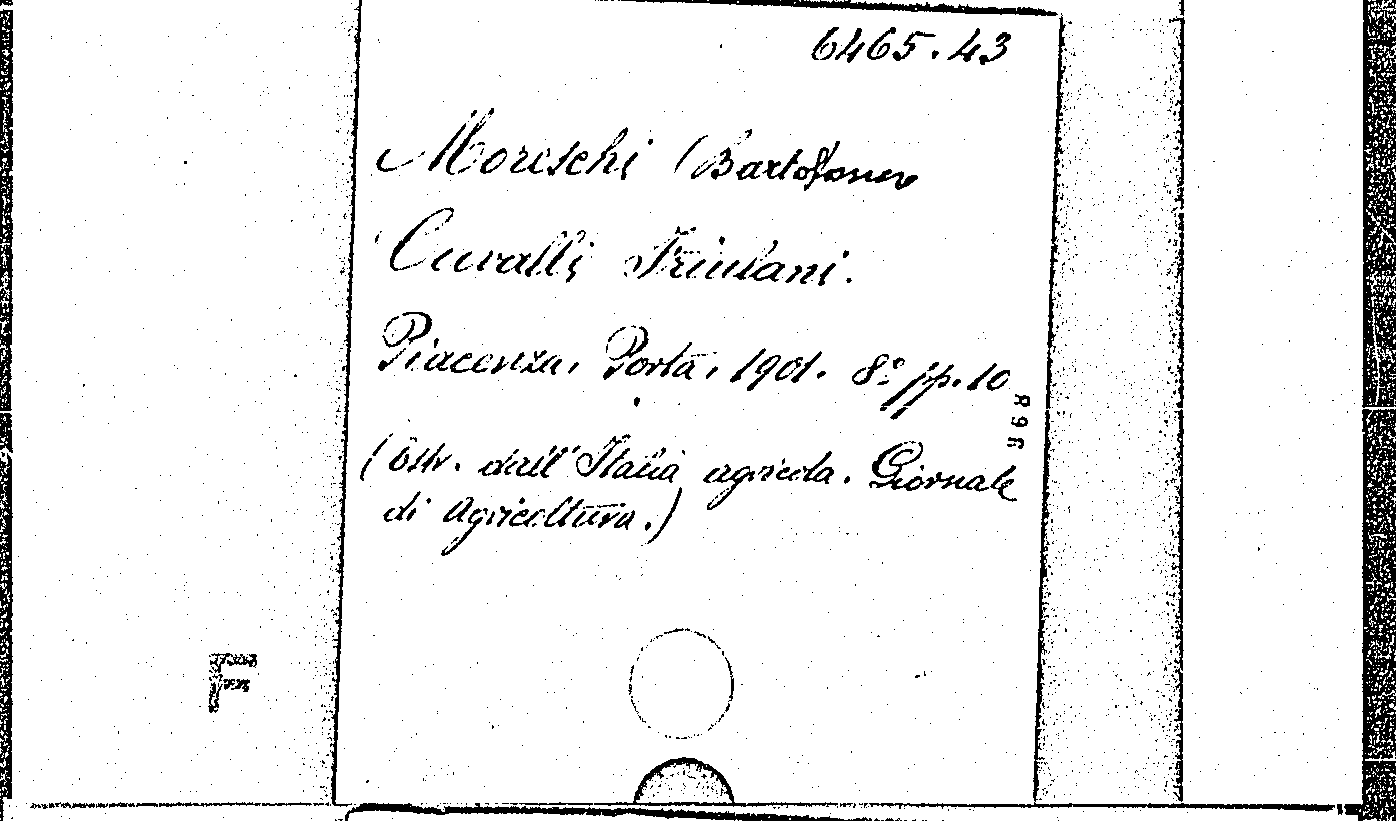 6465.43
Moreschi (Bartolomeo
Cavalli Friulani.
Piacenza, Porta, 1901. 8º pp. 10
896
(Estr. dall'Italia agricola. Giornale
di Agricoltura.)
F